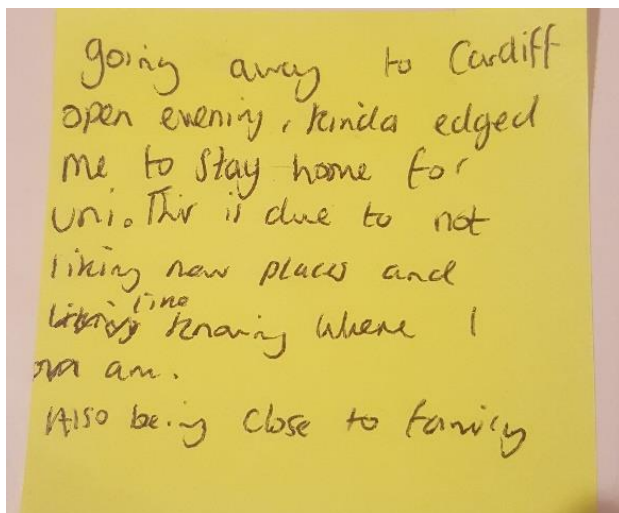 going away to Cardiff
open evening, kinda edged
me to stay home for
uni. This is due to not
liking new places and
like knowing where I
am.
Also being close to family